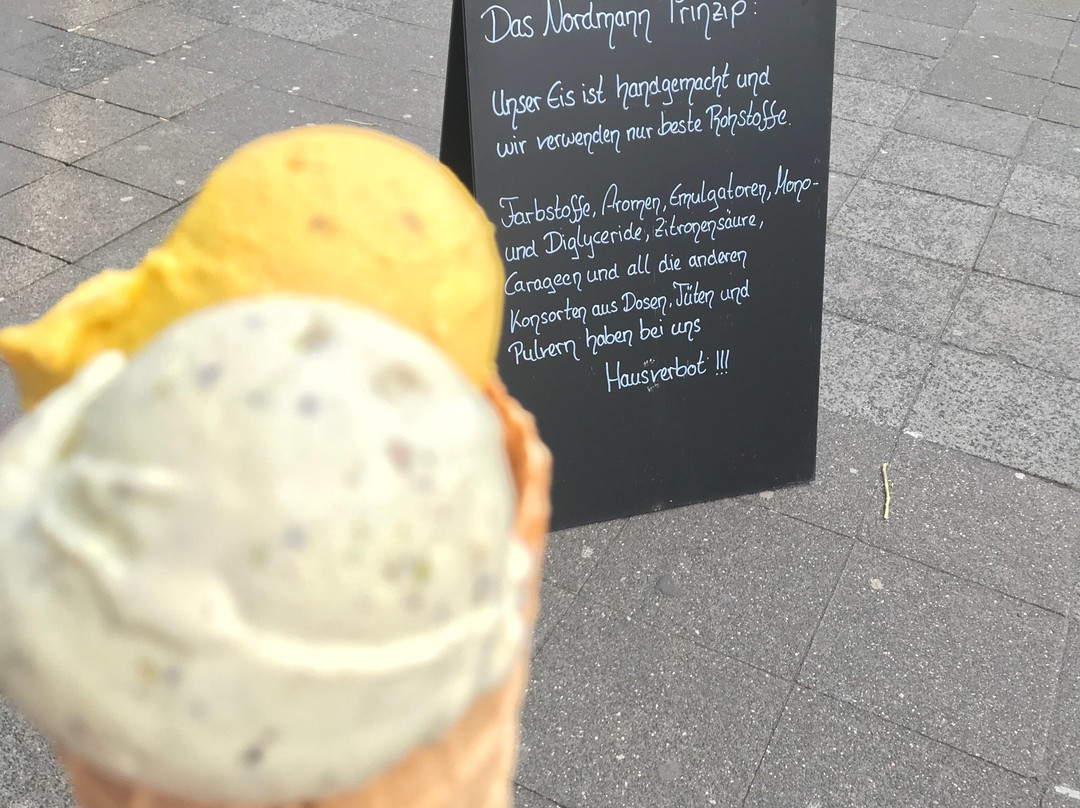 Das Nordmann Prinzip:
Unser Eis ist handgemacht und
wir verwenden nur beste Rohstoffe.
Farbstoffe, Aromen, Emulgatoren, Mono-
und Diglyceride, Zitronensäure,
Carageen und all die anderen
Konsorten aus Dosen, Tüten und
Pulvern haben bei uns
Hausverbot !!!